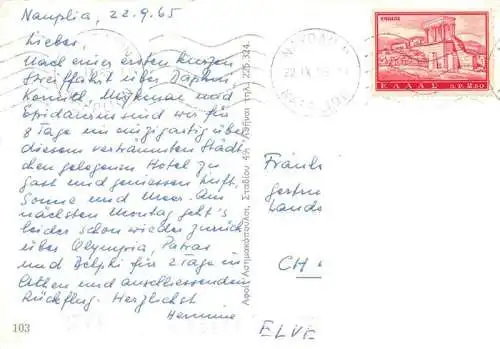 Nauplia, 22.9.65
Lieber,
Nach einer ersten kurzen
Streiffahrt über Daphni,
Korinth, Mykenae und
Epidaurus sind wir für
8 Tage im einzigartig über
diesem verträumten Städt-
chen gelegenen Hotel zu
Gast und geniessen Luft,
Sonne und Meer. Am
nächsten Montag geht's
leider schon wieder zurück
über Olympia, Patras
und Delphi für 2 Tage in
Athen und anschliessendem
Rückflug. Herzlichst
Hermine
103
Αφοί Λ. Δημακόπουλοι, Σταδίου 4Α Αθήναι τηλ. 225.324
ΚΝΩΣΟΣ
ΕΛΛΑΣ ΔΡ. 2.50
ΝΑΥΠΛΙΟΝ
22.IX
Fräul
Landes
CH
ELVE